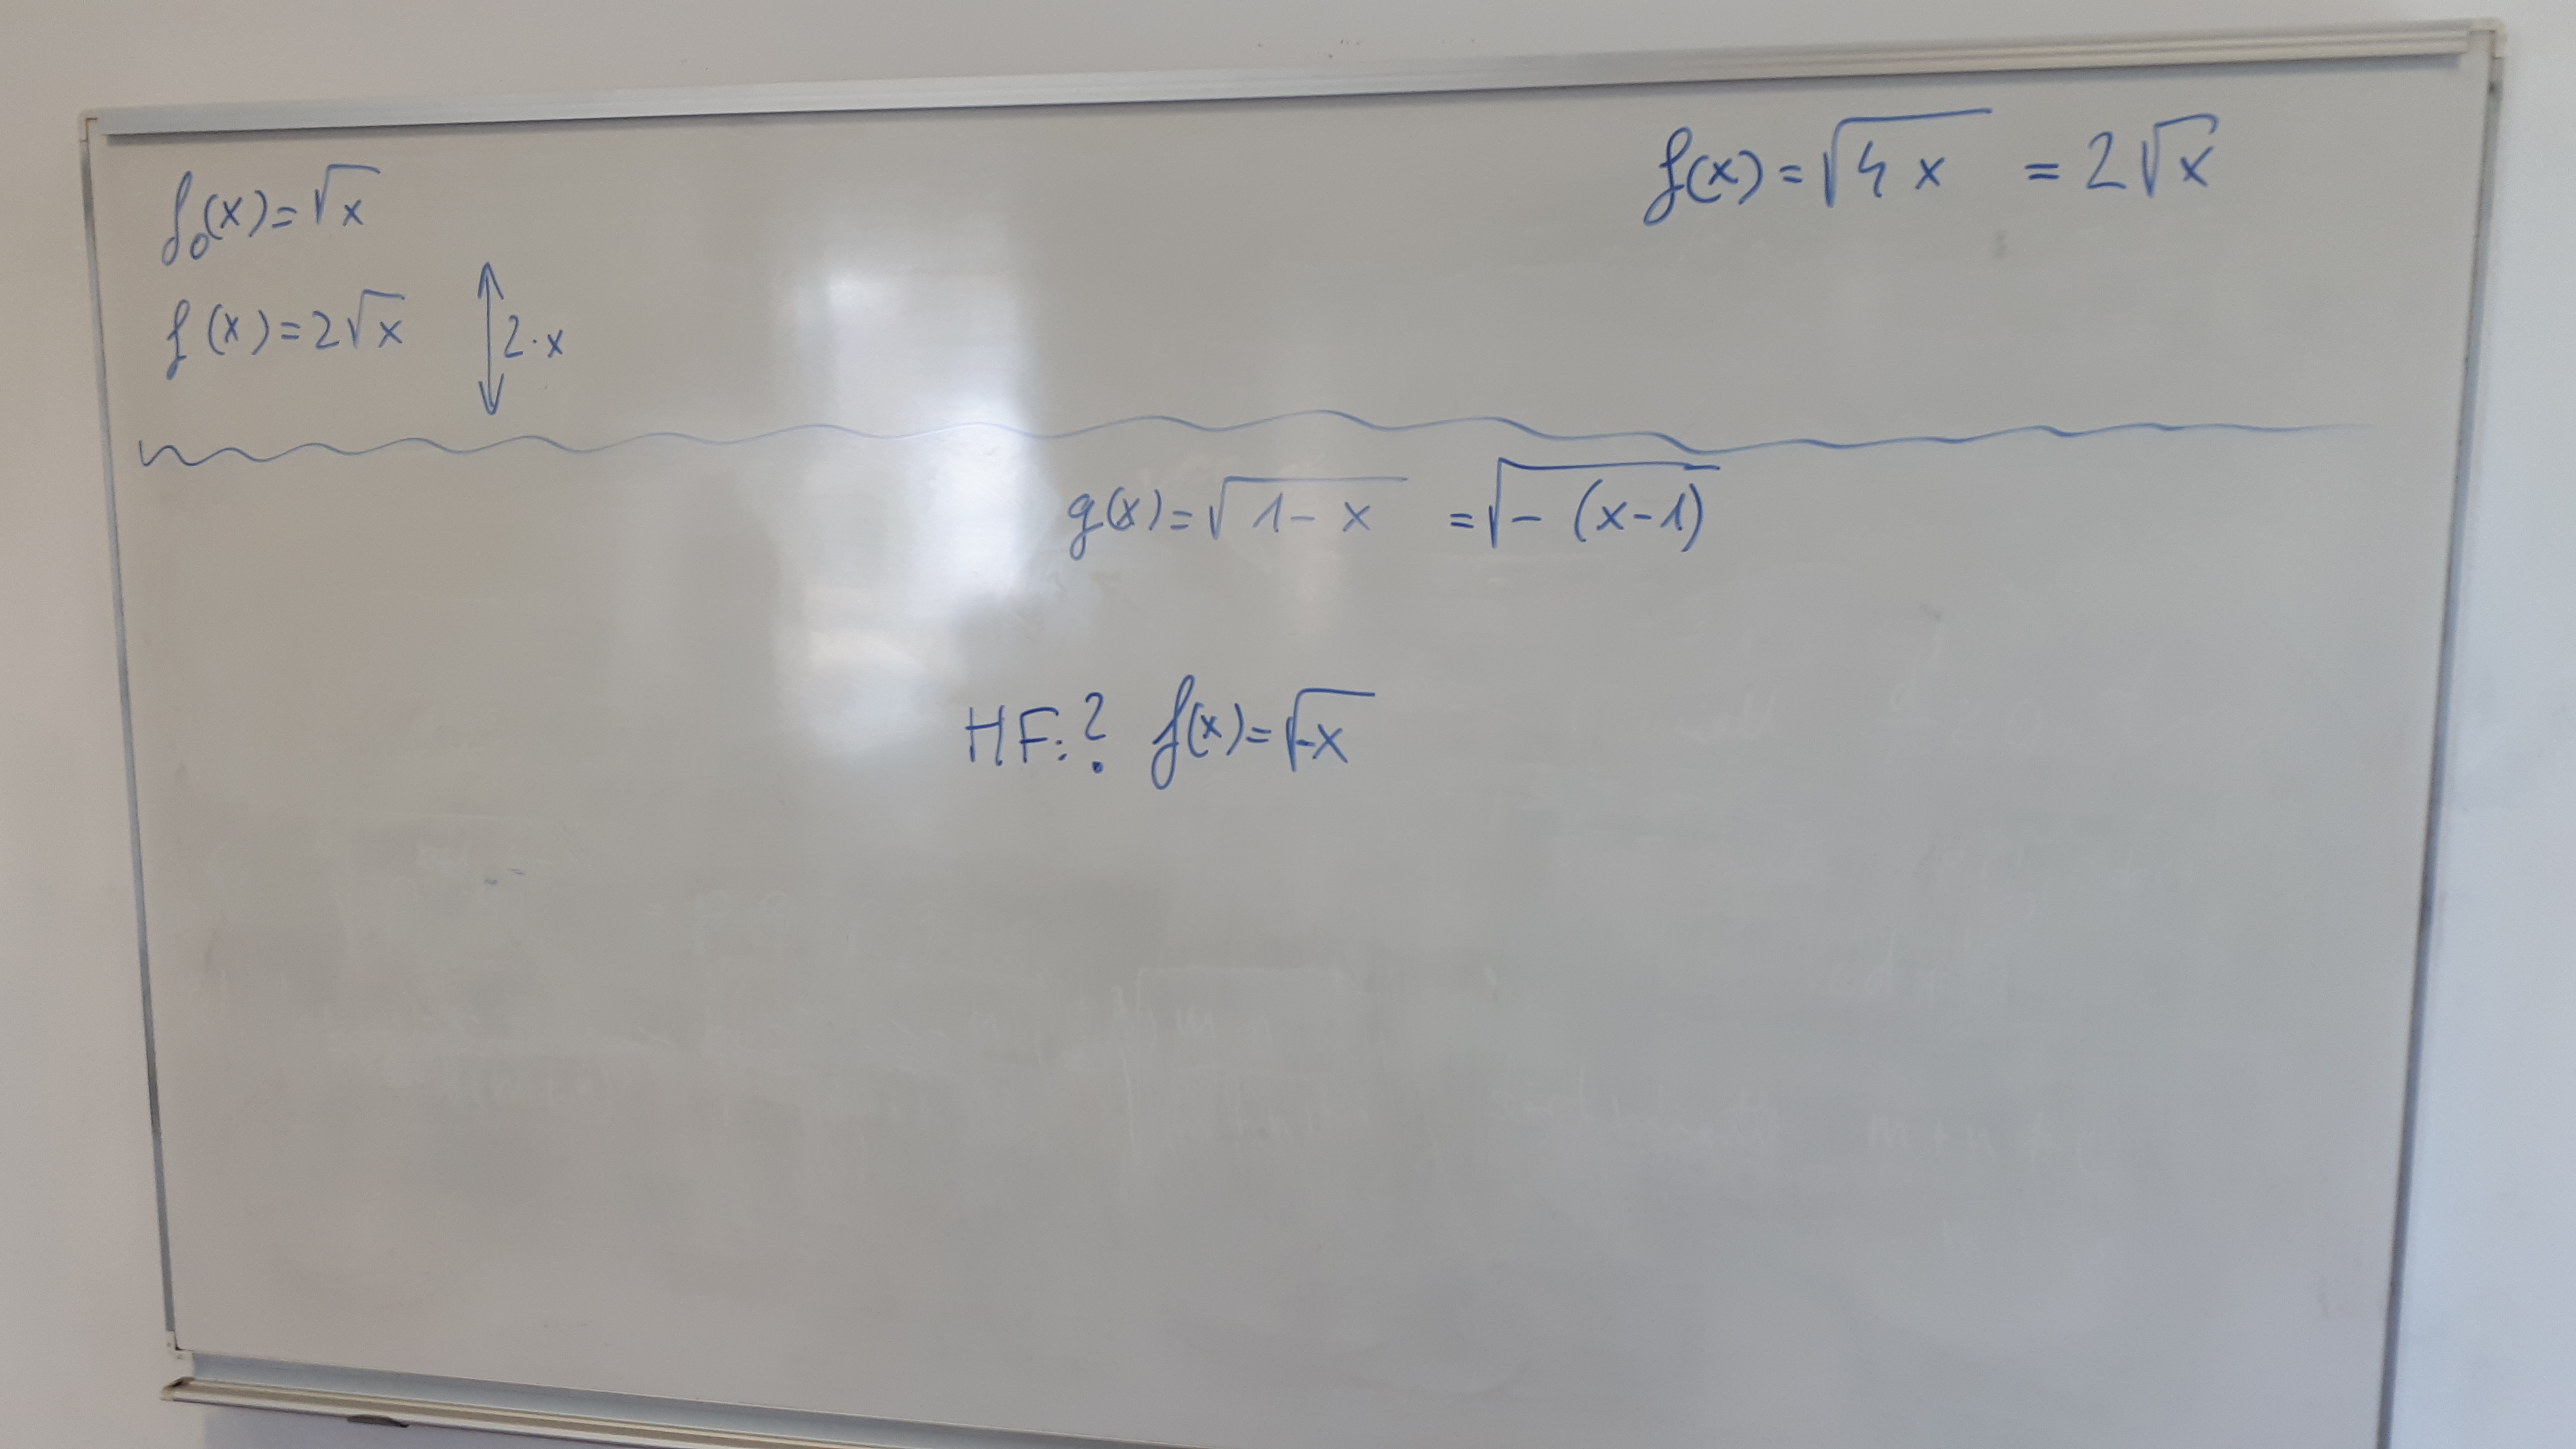 f₀(x)=√x
f(x)=2√x ↕ 2·x
f(x)=√4x = 2√x
g(x)=√1-x =√-(x-1)
HF.:? f(x)=√-x